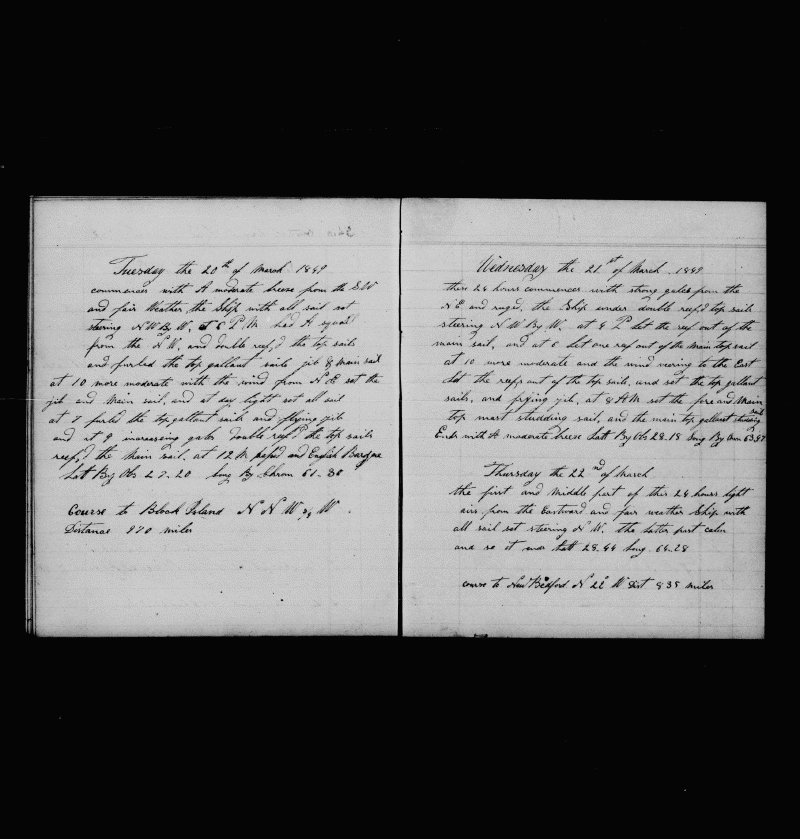 Tuesday the 20th of March 1849
commences with A moderate breeze from the SW
and fair Weather the Ship with all sail set
steering N W By W. at 6 P M had A squal
from the N W. and double reef,d the top sails
and furled the top gallant sails jib & main sail
at 10 more moderate with the wind from N E set the
jib and main sail, and at day light set all sail
at 7 furled the top gallant sails and flying jib
and at 9 increasing gales double reef,d the top sails
reef,d the Main sail. at 12 M pased and English Barque
Lat By Obs 27-20 Long By Chrom 61-30
Course to Block Island N N W W.
Distance 970 miles
Wednesday the 21st of March 1849
these 24 hours commences with strong gales from the
N E and ruged, the Ship under double reef,d top sails
steering N W By W. at 4 P let the reef out of the
main sail, and at 6 let one reef out of the main top sail
at 10 more moderate and the wind vering to the East
let the reefs out of the top sails, and set the top gallant
sails, and flying jib, at 8 AM set the fore and Main
top mast studding sail, and the main top gallant studding sail
Ends with A moderate breeze Latt By Obs 28.18 Long By Crom 63.57
Thursday the 22nd of March
the first and middle part of this 24 hours light
airs from the Eastward and fair weather Ship with
all sail set steering N W. the latter part calm
and so it ends Latt 28.44 Long. 64.28
course to New Bedford N 22° W Dist 838 miles